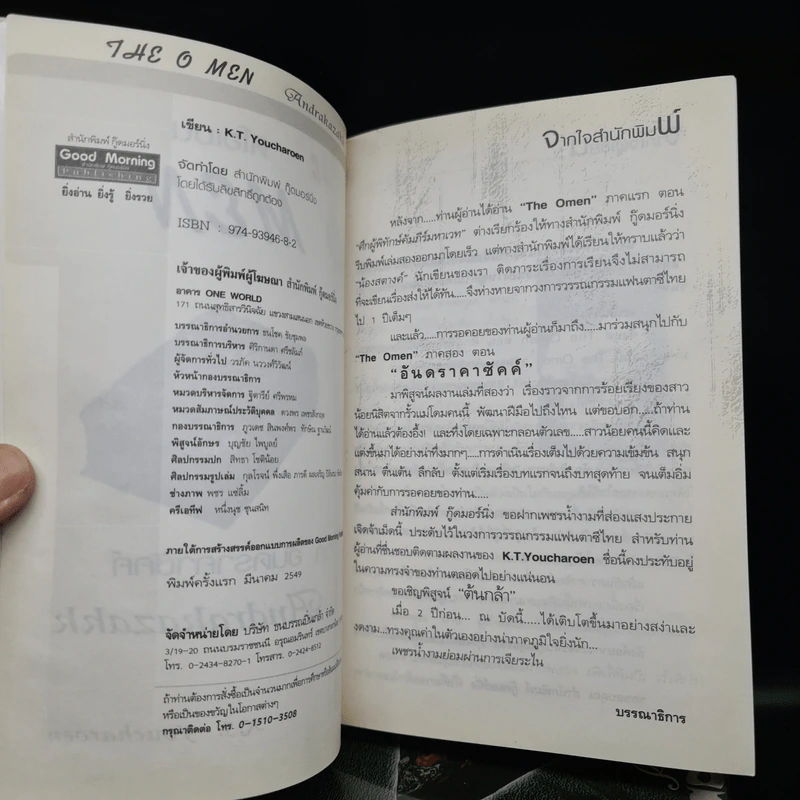 THE O MEN
Andrakazak
สำนักพิมพ์ กู๊ดมอร์นิ่ง
Good Morning
Publishing
ยิ่งอ่าน ยิ่งรู้ ยิ่งรวย
เขียน : K.T. Youcharoen
จัดทำโดย สำนักพิมพ์ กู๊ดมอร์นิ่ง
โดยได้รับลิขสิทธิ์ถูกต้อง
ISBN : 974-93946-8-2
เจ้าของผู้พิมพ์ผู้โฆษณา สำนักพิมพ์ กู๊ดมอร์นิ่ง
อาคาร ONE WORLD
171 ถนนสุทธิสารวินิจฉัย แขวงสามเสนนอก
บรรณาธิการอำนวยการ ธนโชค
บรรณาธิการบริหาร ศิริกานดา ศรีชลัมภ์
ผู้จัดการทั่วไป วรภัค นววงศ์วิวัฒน์
หัวหน้ากองบรรณาธิการ
หมวดบริหารจัดการ ฐิตารีย์ ศรีพรหม
หมวดสัมภาษณ์ประวัติบุคคล ดวงพร
กองบรรณาธิการ ภูวเดช สินพงศ์พร
พิสูจน์อักษร บุญชัย ไพบูลย์
ศิลปกรรมปก สิทธา โชติน้อย
ศิลปกรรมรูปเล่ม กุลโรจน์
ช่างภาพ พชร แซ่ลิ้ม
ครีเอทีฟ หนึ่งนุช ชุนสนิท
ภายใต้การสร้างสรรค์ออกแบบการผลิตของ Good Morning
พิมพ์ครั้งแรก มีนาคม 2549
จัดจำหน่ายโดย บริษัท ธนบรรณปิ่นเกล้า จำกัด
3/19-20 ถนนบรมราชชนนี อรุณอมรินทร์
โทร. 0-2434-8270-1 โทรสาร. 0-2424-8512
ถ้าท่านต้องการสั่งซื้อเป็นจำนวนมากเพื่อการศึกษา
หรือเป็นของขวัญในโอกาสต่างๆ
กรุณาติดต่อ โทร. 0-1510-3508
จากใจสำนักพิมพ์
หลังจาก.....ท่านผู้อ่านได้อ่าน "The Omen" ภาคแรก ตอน
"ศึกผู้พิทักษ์คัมภีร์มหาเวท" ต่างเรียกร้องให้ทางสำนักพิมพ์ กู๊ดมอร์นิ่ง
รีบพิมพ์เล่มสองออกมาโดยเร็ว แต่ทางสำนักพิมพ์ได้เรียนให้ทราบแล้วว่า
"น้องสตางค์" นักเขียนของเรา ติดภาระเรื่องการเรียนจึงไม่สามารถ
ที่จะเขียนเรื่องส่งให้ได้ทัน.....จึงห่างหายจากวงการวรรณกรรมแฟนตาซีไทย
ไป 1 ปีเต็มๆ
และแล้ว.....การรอคอยของท่านผู้อ่านก็มาถึง.....มาร่วมสนุกไปกับ
"The Omen" ภาคสอง ตอน
"อันดราคาซัคค์"
มาพิสูจน์ผลงานเล่มที่สองว่า เรื่องราวจากการร้อยเรียงของสาว
น้อยนิสิตจากรั้วแม่โดมคนนี้ พัฒนาฝีมือไปถึงไหน แต่ขอบอก....ถ้าท่าน
ได้อ่านแล้วต้องอึ้ง! และทึ่งโดยเฉพาะกลอนตัวเลข.....สาวน้อยคนนี้คิดและ
แต่งขึ้นมาได้อย่างน่าทึ่งมากๆ....การดำเนินเรื่องเต็มไปด้วยความเข้มข้น สนุก
สนาน ตื่นเต้น ลึกลับ ตั้งแต่เริ่มเรื่องบทแรกจนถึงบทสุดท้าย จนเต็มอิ่ม
คุ้มค่ากับการรอคอยของท่าน.....
สำนักพิมพ์ กู๊ดมอร์นิ่ง ขอฝากเพชรน้ำงามที่ส่องแสงประกาย
เจิดจ้าเม็ดนี้ ประดับไว้ในวงการวรรณกรรมแฟนตาซีไทย สำหรับท่าน
ผู้อ่านที่ชื่นชอบติดตามผลงานของ K.T.Youcharoen ชื่อนี้คงประทับอยู่
ในความทรงจำของท่านตลอดไปอย่างแน่นอน
ขอเชิญพิสูจน์ "ต้นกล้า"
เมื่อ 2 ปีก่อน... ณ บัดนี้.....ได้เติบโตขึ้นมาอย่างสง่าและ
งดงาม...ทรงคุณค่าในตัวเองอย่างน่าภาคภูมิใจยิ่งนัก...
เพชรน้ำงามย่อมผ่านการเจียระไน
บรรณาธิการ